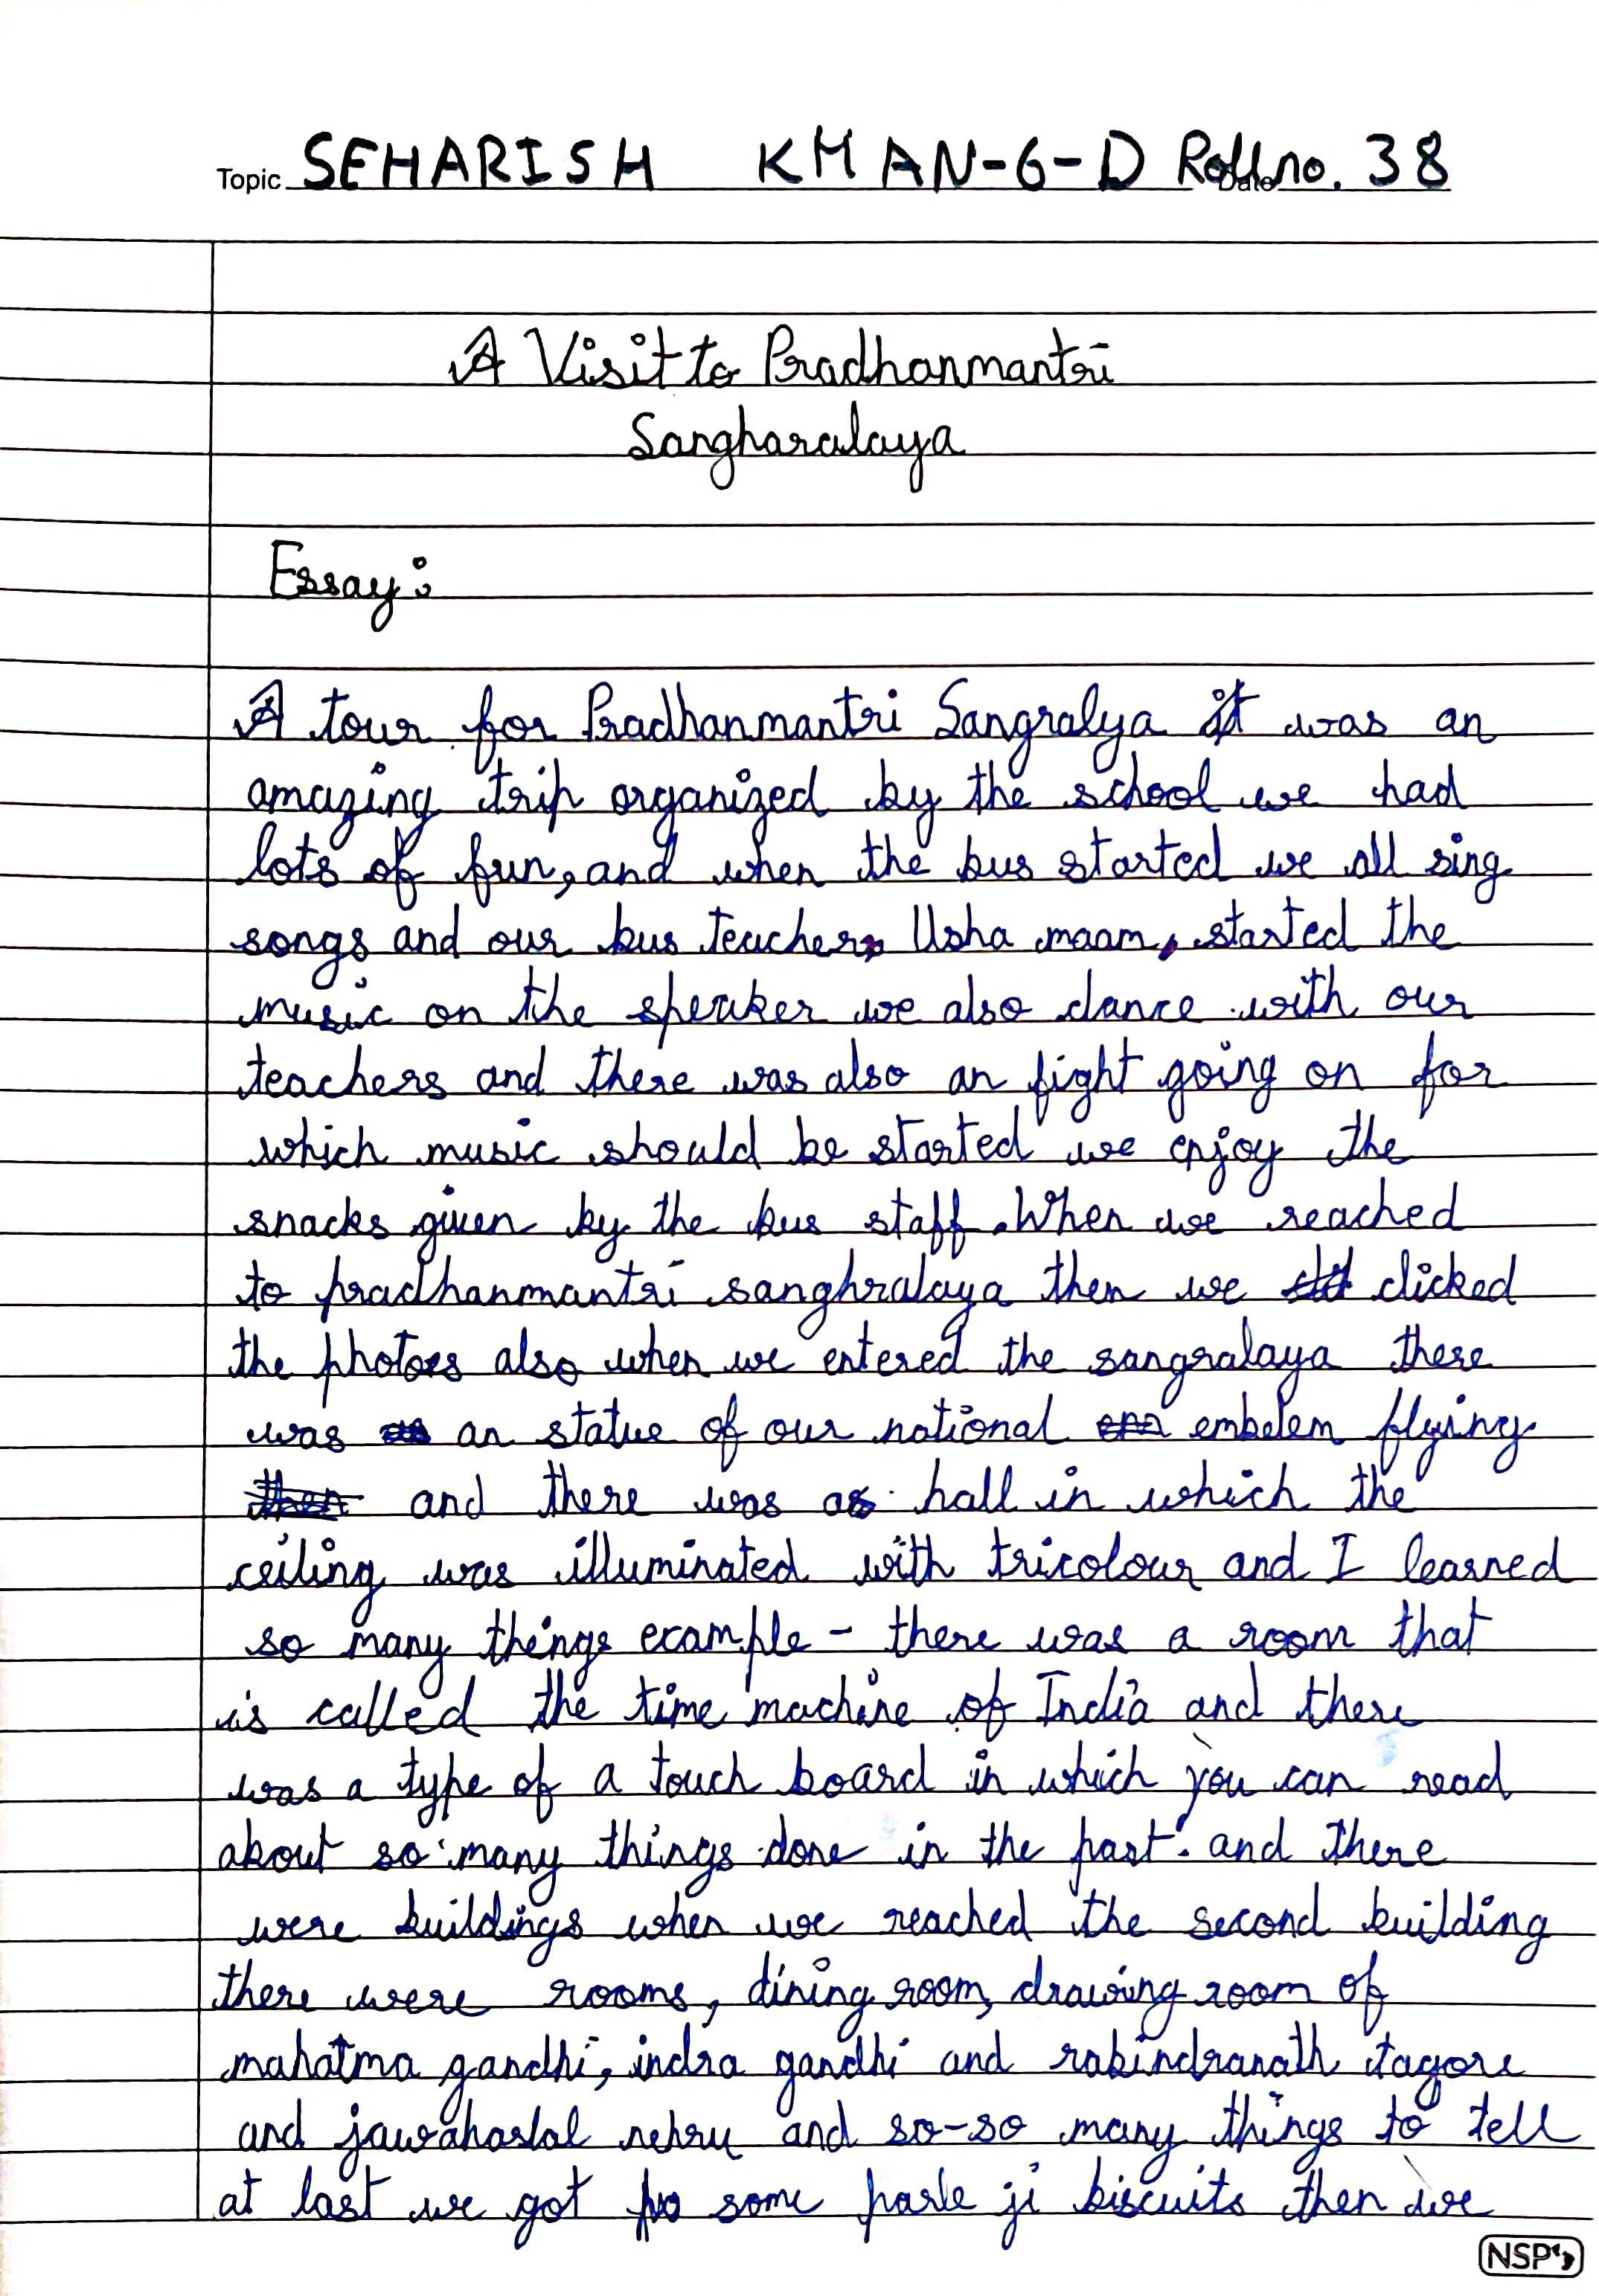 Topic SEHARISH KHAN-6-D Roll no. 38
A Visit to Pradhanmantri
Sangharalaya
Essay:
A tour for Pradhanmantri Sangralya it was an
amazing trip organized by the school we had
lots of fun, and when the bus started we all sing
songs and our bus teacher, Usha maam, started the
music on the speaker we also dance with our
teachers and there was also an fight going on for
which music should be started we enjoy the
snacks given by the bus staff. When we reached
to pradhanmantri sanghralaya then we clicked
the photoes also when we entered the sangralaya there
was an statue of our national embelem flying
and there was a hall in which the
ceiling was illuminated with tricolour and I learned
so many things example - there was a room that
is called the time machine of India and there
was a type of a touch board in which you can read
about so many things done in the past. and there
were buildings when we reached the second building
there were rooms, dining room, drawing room of
mahatma gandhi, indra gandhi and rabindranath tagore
and jawaharlal nehru and so-so many things to tell
at last we got some parle ji biscuits then we
NSP